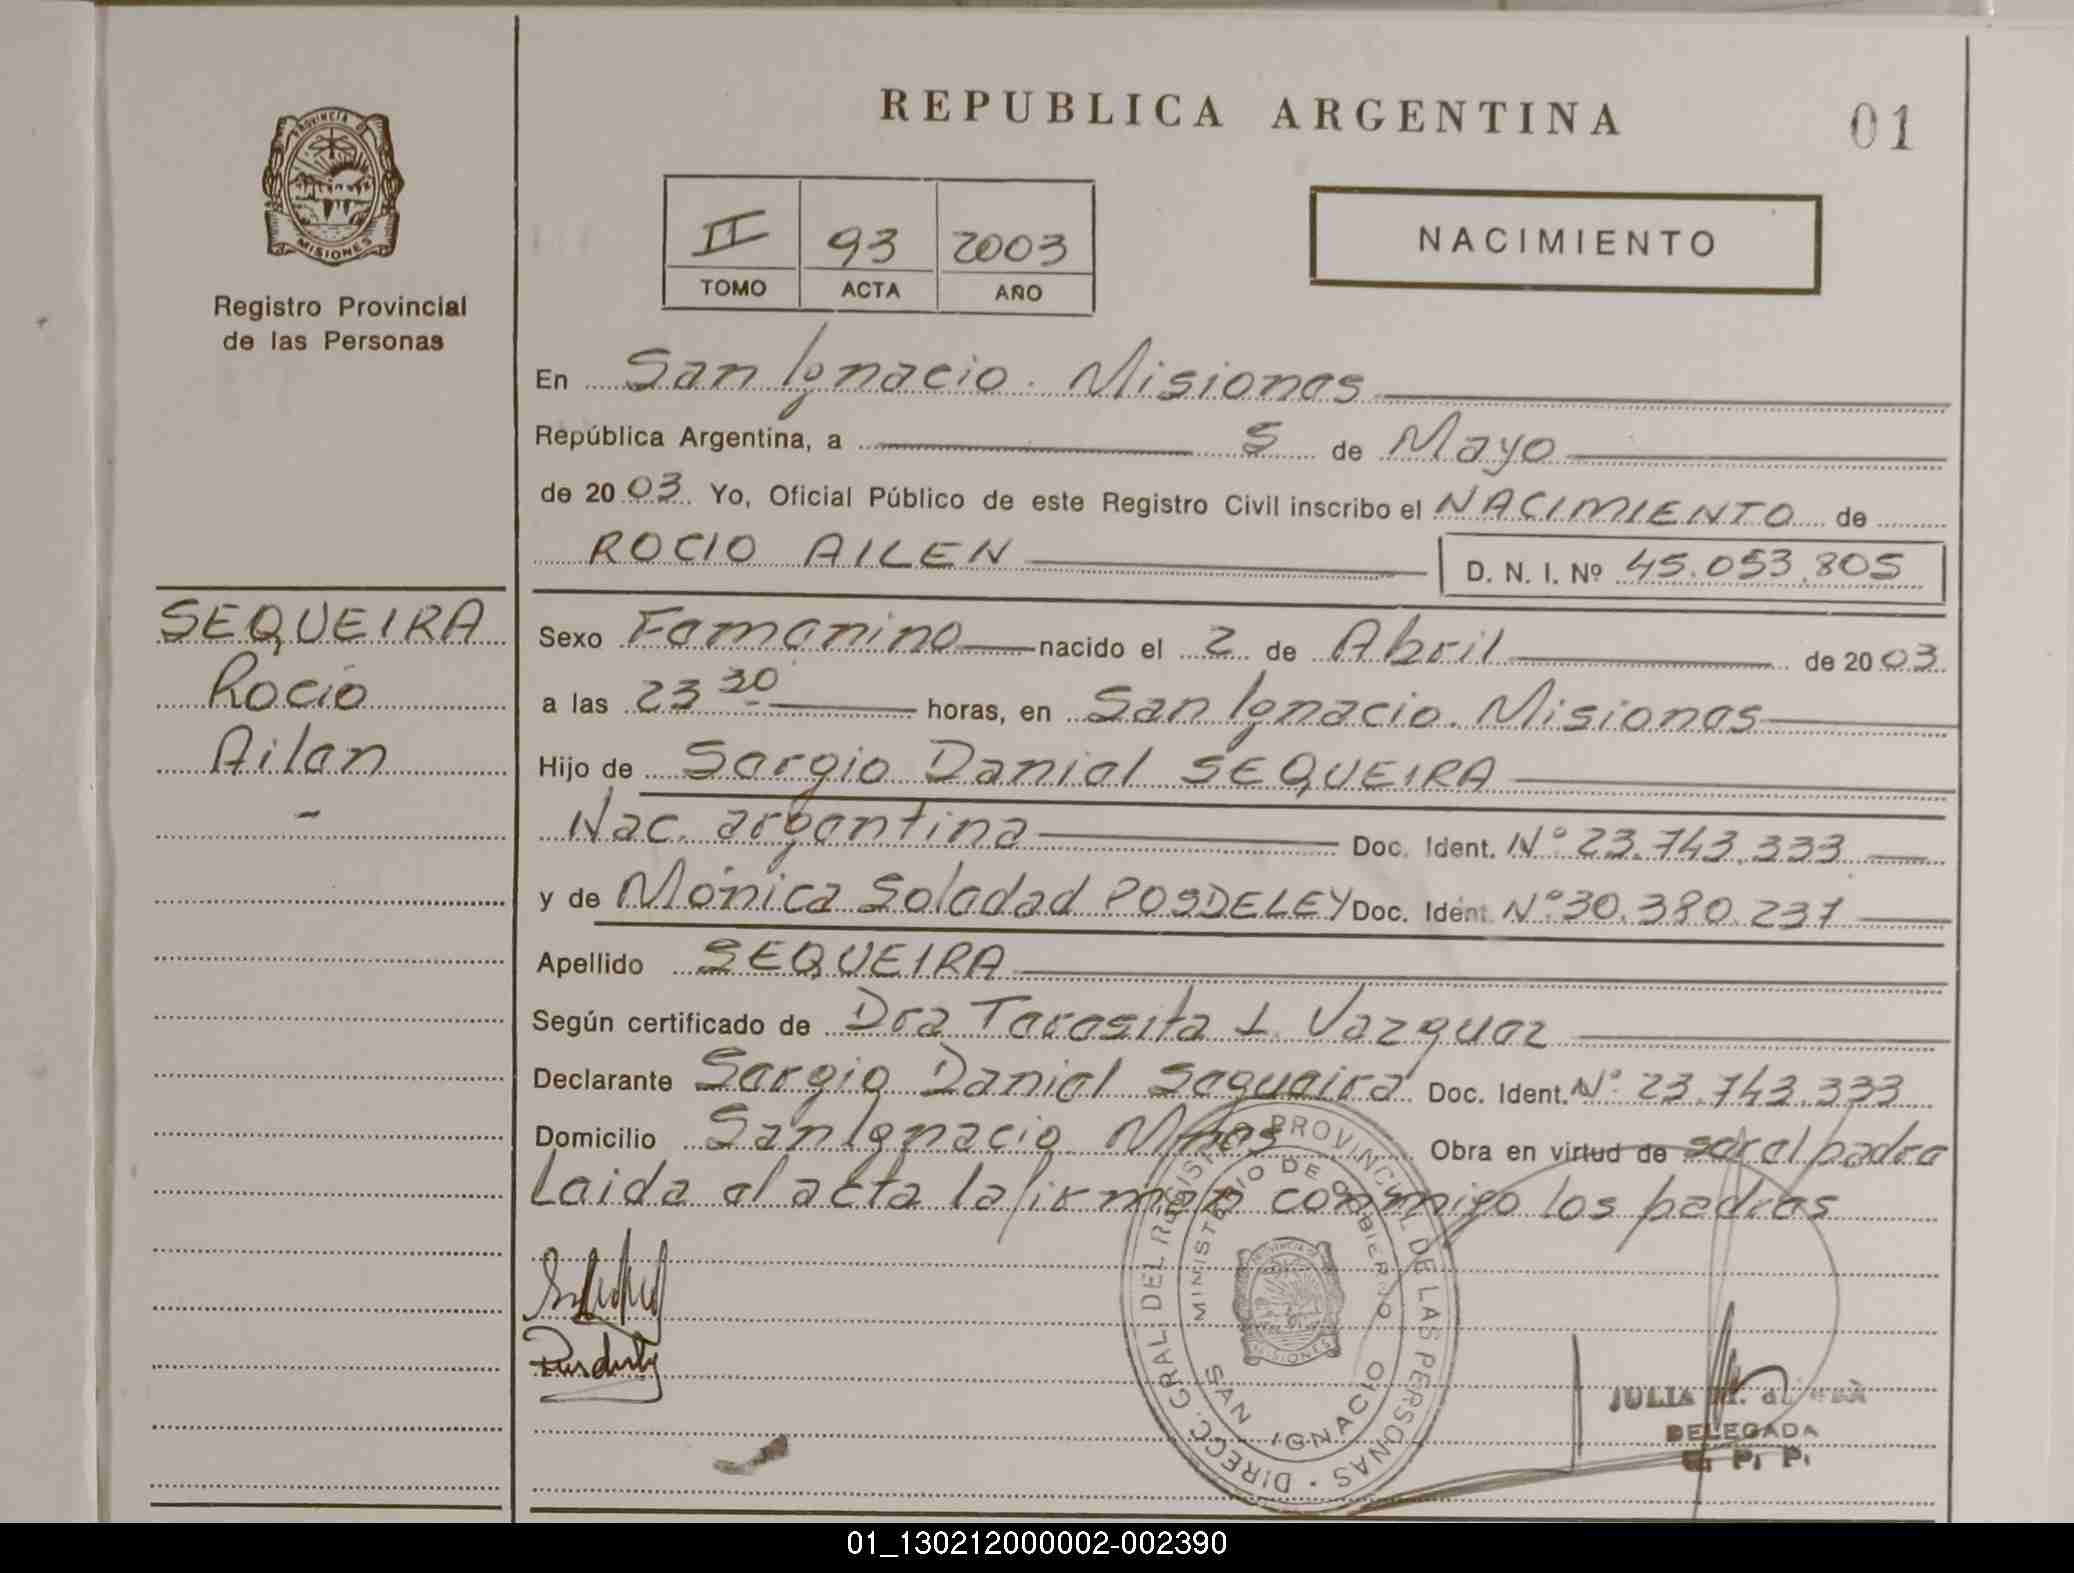 REPUBLICA ARGENTINA
01
PROVINCIA DE
MISIONES
Registro Provincial
de las Personas
II 93 2003
TOMO ACTA AÑO
NACIMIENTO
En San Ignacio. Misiones
República Argentina, a 5 de Mayo
de 2003. Yo, Oficial Público de este Registro Civil inscribo el NACIMIENTO de
ROCIO AILEN D. N. I. Nº 45.053.805
SEQUEIRA
Rocio
Ailen
-
Sexo Femenino nacido el 2 de Abril de 2003
a las 23 30 horas, en San Ignacio. Misiones
Hijo de Sergio Daniel SEQUEIRA
Nac. argentina Doc. Ident. Nº 23.743.333
y de Mónica Soledad POSDELEY Doc. Ident. Nº 30.380.237
Apellido SEQUEIRA
Según certificado de Dra Teresita L. Vazquez
Declarante Sergio Daniel Sequeira Doc. Ident. Nº 23.743.333
Domicilio San Ignacio Mnes Obra en virtud de ser el padre
Leida el acta la firman conmigo los padres
DIRECC. GRAL DEL REGISTRO PROVINCIAL DE LAS PERSONAS
MINISTERIO DE GOBIERNO
SAN IGNACIO
MISIONES
JULIA
DELEGADA
R. P. P.
01_130212000002-002390